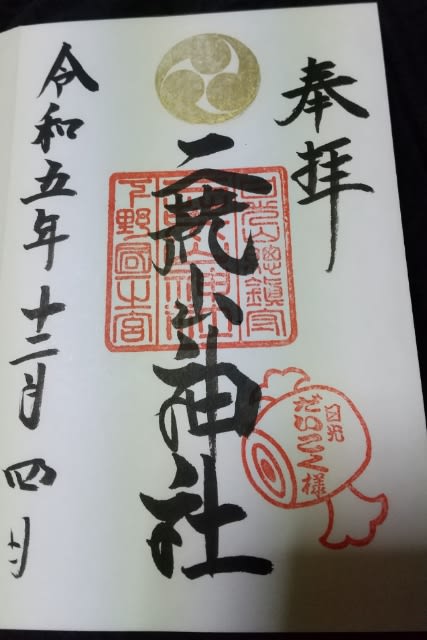 奉拝
二荒山神社
下野國一宮
日光
だいこく様
令和五年十二月四日